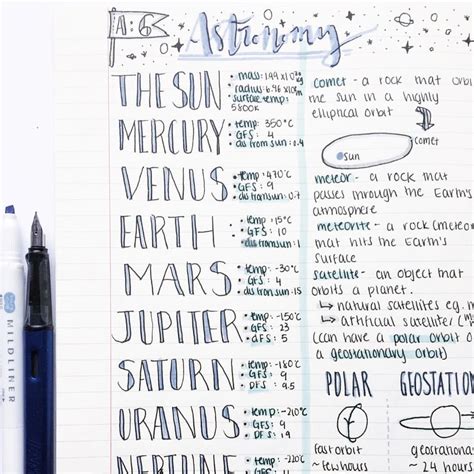 A:6
Astronomy
THE SUN
• mass: 1.99 x10³⁰ kg
• radius: 6.96 x10⁸ m
• surface temp: 5800K
MERCURY
• temp: 350°C
• GFS: 4
• dis from sun: 0.4
VENUS
• temp: 470°C
• GFS: 9
• dis from sun: 0.7
EARTH
• temp: 15°C
• GFS: 10
• dis from sun: 1
MARS
temp: -30°C
• GFS: 4
• dis from sun: 1.5
JUPITER
temp: -150°C
• GFS: 23
• DFS: 5
SATURN
temp: -180°C
• GFS: 9
• DFS: 9.5
URANUS
• temp: -210°C
• GFS: 9
• DFS: 19
NEPTUNE
• temp: -220°C
comet - a rock that orbi
me sun in a highly
elliptical orbit
comet
sun
meteor - a rock that
passes through the Earth's
atmosphere
meteorite - a rock (meteor
that hits the Earth's
surface
satellite - an object that
orbits a planet.
natural satellites eg. m
artificial satellite/
(can have a polar orbit o
a geostationary orbit)
POLAR
GEOSTATION
fast orbit
~ few hours
geostationar
~ 24 hours
MILDLINER